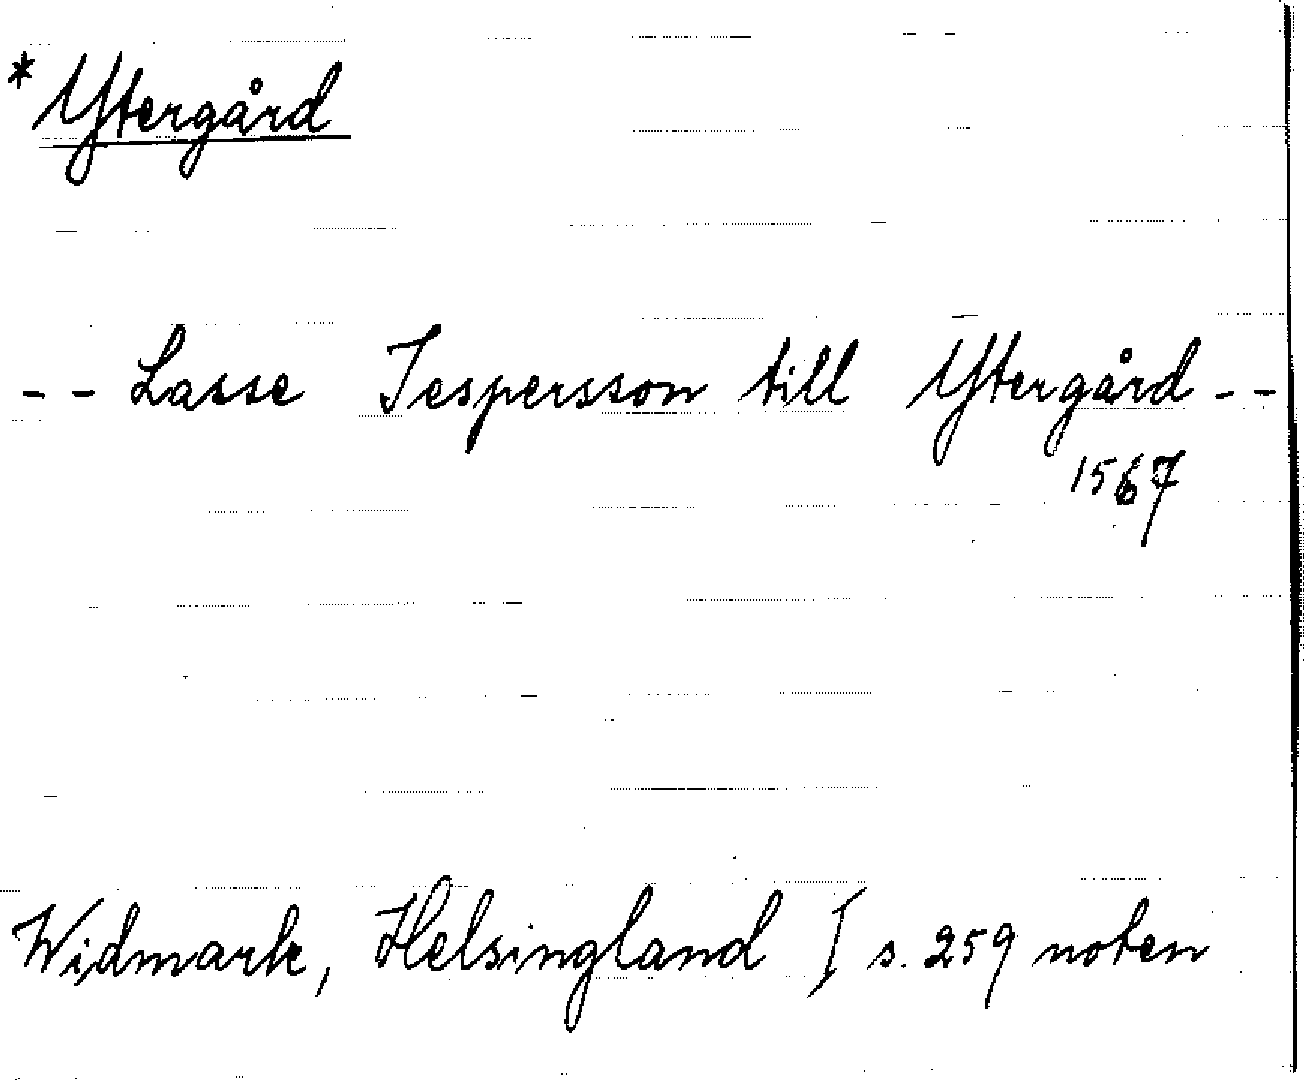 * Ytergård
-- Lasse Jespersson till Ytergård --
1567
Widmark, Helsingland I s. 259 noten